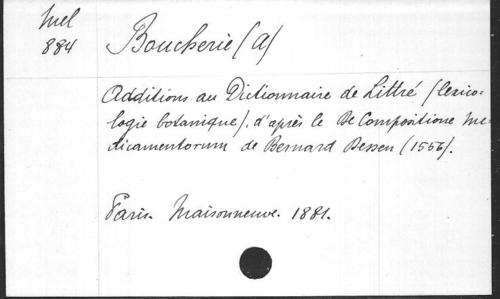 Mel
884
Boucherie (A)
Additions au Dictionnaire de Littré (lexico-
logie botanique), d'après le De Compositione me-
dicamentorum de Bernard Dessen (1556).
Paris. Maisonneuve. 1881.